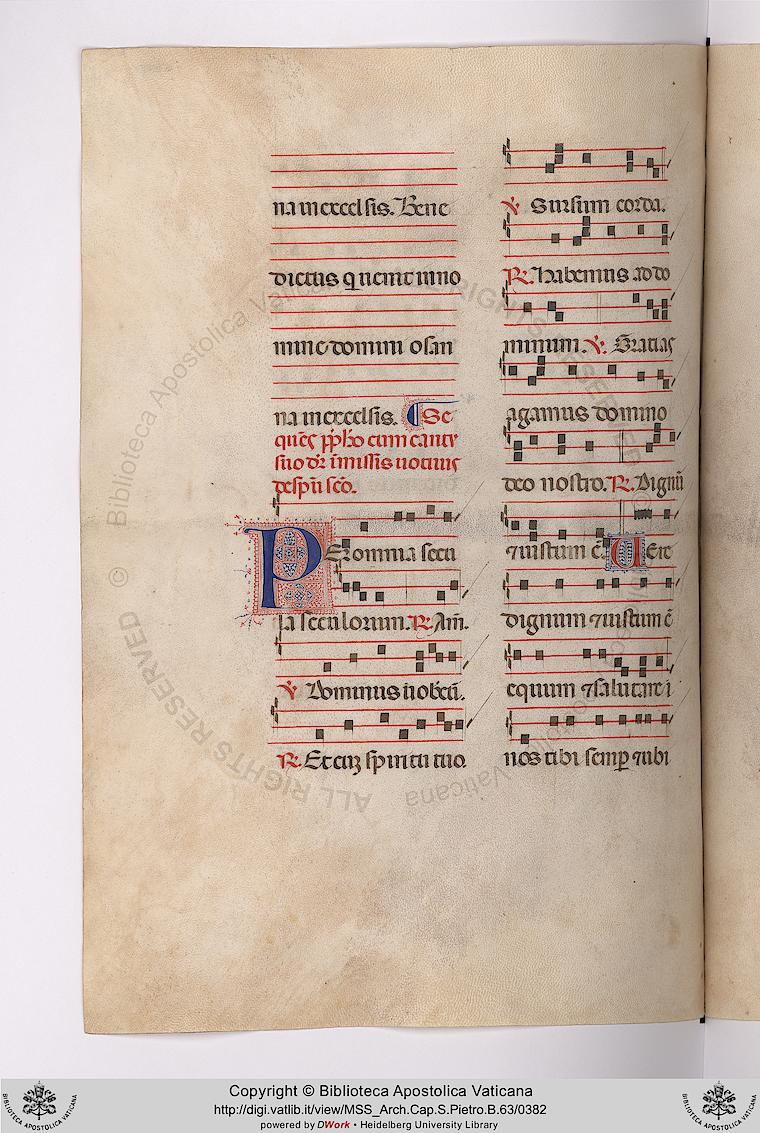 na in excelsis. Bene
dictus q uenit in no
mine domini osan
na in excelsis. Se
quēs p̄p̄hō cum cantu
suo dr̄ in missis uotiuis
de sp̄u sc̄o.
PEr omnia secu
la seculorum. R. Am̄.
V. Dominus uobcū.
R. Et cuȝ spiritu tuo.
V. Sursum corda.
R. Habemus ad do
minum. V. Gratias
agamus domino
deo nostro. R. Dignū
⁊ iustum ē. UEre
dignum ⁊ iustum ē
equum ⁊ salutare i
nos tibi semp̄ ⁊ ubi
© Biblioteca Apostolica Vaticana
ALL RIGHTS RESERVED
Copyright © Biblioteca Apostolica Vaticana
http://digi.vatlib.it/view/MSS_Arch.Cap.S.Pietro.B.63/0382
powered by DWork • Heidelberg University Library